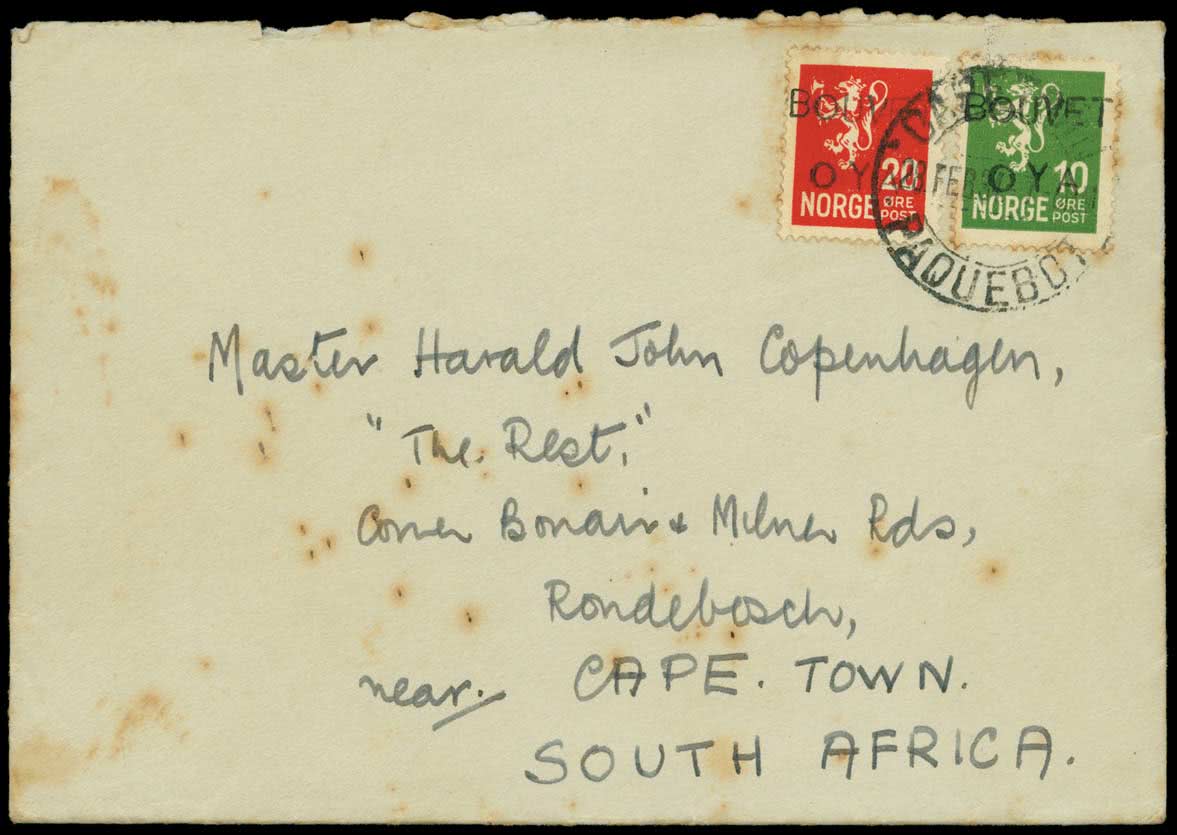 BOUVET
OYA
20
NORGE ØRE
POST
BOUVET
OYA
10
NORGE ØRE
POST
FEB
PAQUEBOT
Master Harald John Copenhagen,
"The. Rest."
Corner Bonair & Milner Rds,
Rondebosch,
near. CAPE. TOWN.
SOUTH AFRICA.